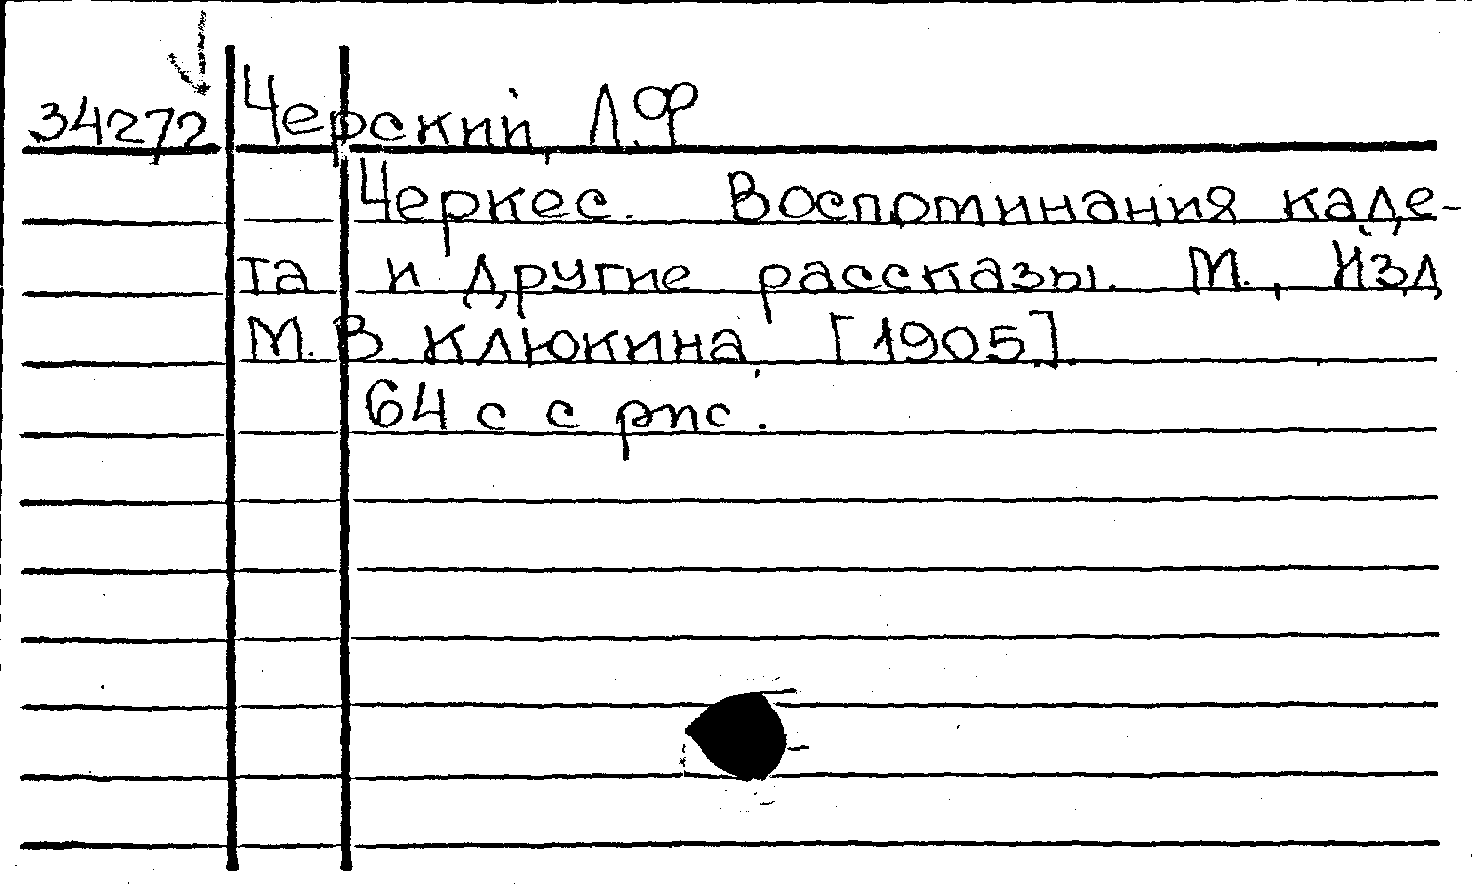 34272 Черский, Л.Ф
Черкес. Воспоминания каде-
та и другие рассказы. М., Изд
М. В. Клюкина. [1905].
64 с с рис.